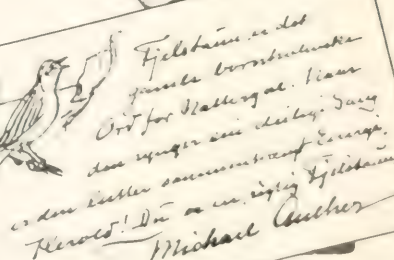 Fjelstaun er det
gamle bornholmske
Ord for Nattergal. Naar
den synger sin dejlige Sang
er den
Herold! Du er en rigtig Fjelstaun
Michael Ancher